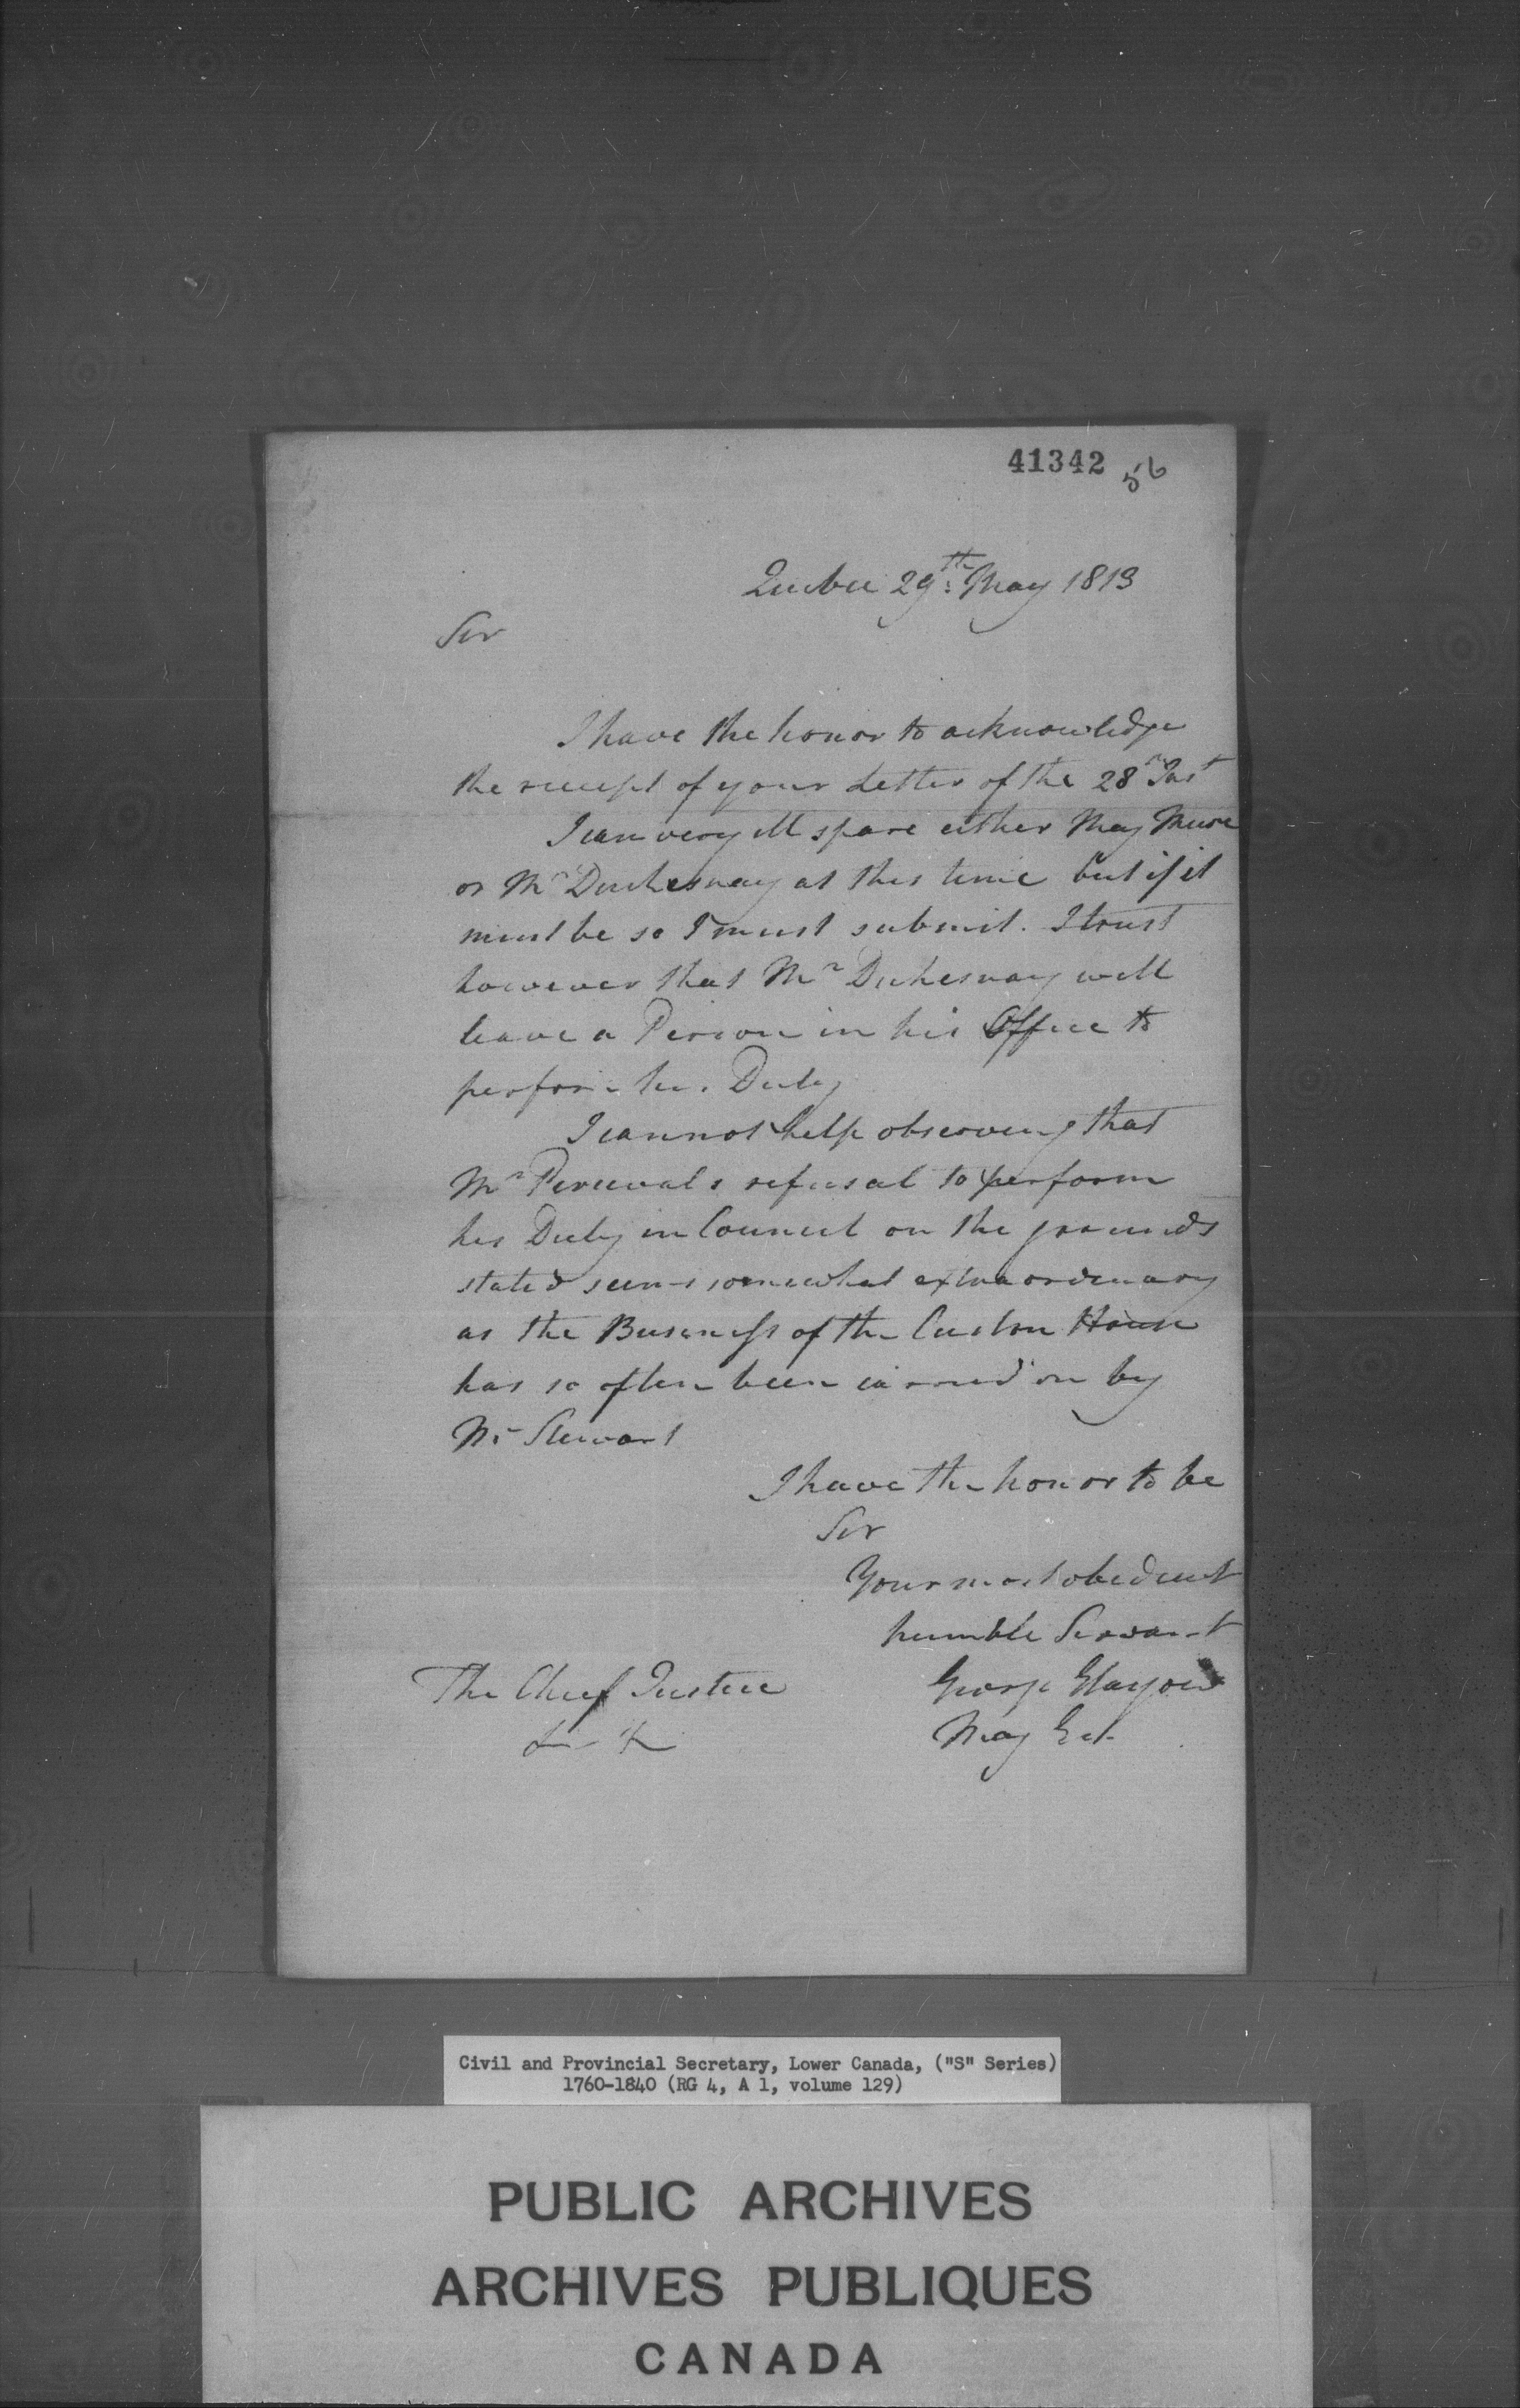 41342 56
Quebec 29th May 1813
Sir
I have the honor to acknowledge
the receipt of your Letter of the 28th Inst
I can very ill spare either Maj Mure
or Mr Duchesnay at this time but if it
must be so I must submit. I trust
however that Mr Duchesnay will
leave a Person in his Office to
perform his Duty
I cannot help observing that
Mr Percevals refusal to perform
his Duty in Council on the grounds
stated seems somewhat extraordinary
as the Business of the Custom House
has so often been carried on by
Mr Stewart
I have the honor to be
Sir
Your most obedient
humble Servant
The Chief Justice George Glasgow
Maj Gel
Civil and Provincial Secretary, Lower Canada, ("S" Series)
1760-1840 (RG 4, A 1, volume 129)
PUBLIC ARCHIVES
ARCHIVES PUBLIQUES
CANADA